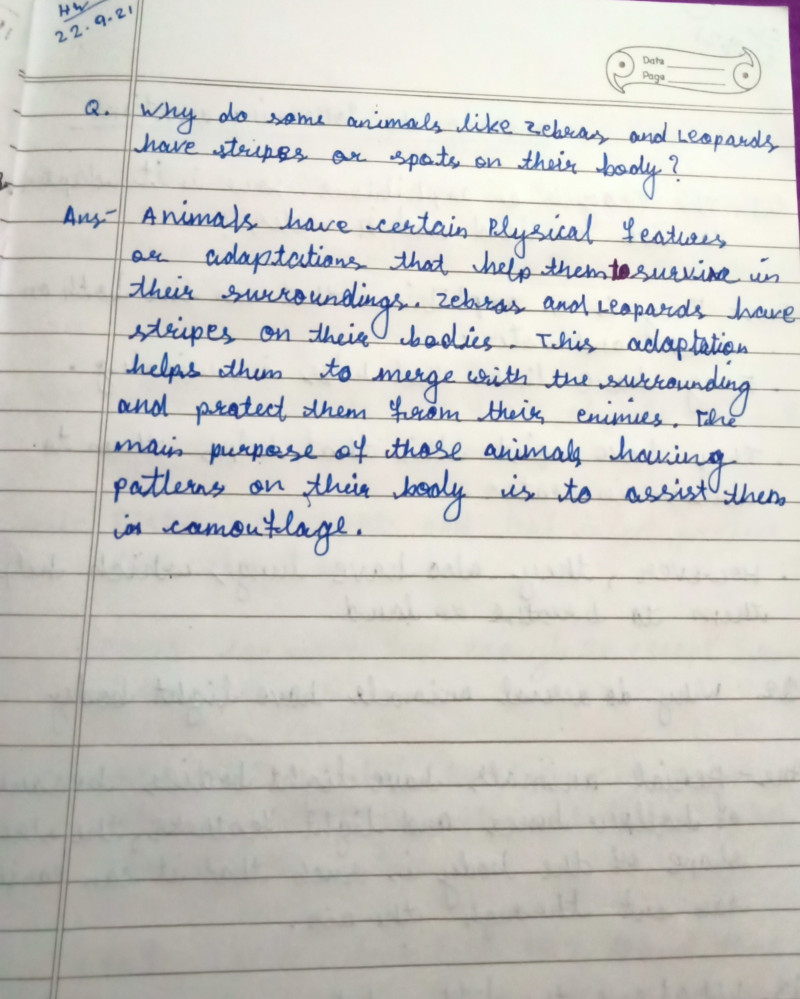 HW
22.9.21
Date
Page
Q. Why do some animals like zebras and Leopards
have stripes or spots on their body?
Ans- Animals have certain Physical features
or adaptations that help them to survive in
their surroundings. Zebras and Leopards have
stripes on their bodies. This adaptation
helps them to merge with the surrounding
and protect them from their enimies. The
main purpose of those animals having
patterns on their body is to assist them
in camouflage.